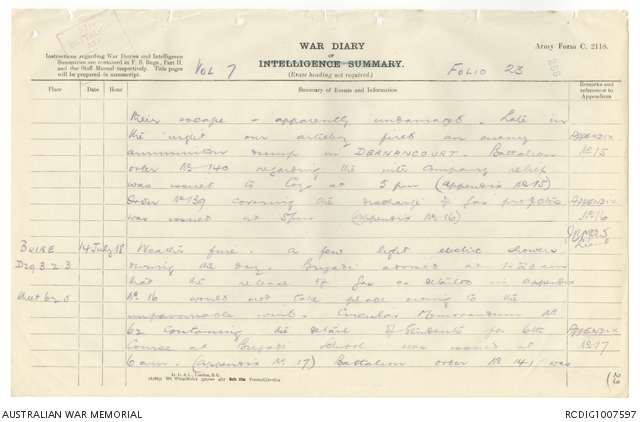 WAR DIARY
OF
INTELLIGENCE SUMMARY.
(Erase heading not required.)
Army Form C. 2118.
Instructions regarding War Diaries and Intelligence
Summaries are contained in F. S. Regs., Part II.
and the Staff Manual respectively. Title pages
will be prepared in manuscript.
VOL 7
FOLIO 23
Place Date Hour Summary of Events and Information Remarks and references to Appendices
their escape & apparently undamaged. Late in
the night our artillery fired an enemy
ammunition dump in DERNANCOURT. Battalion
order No 140 regarding the inter Company relief
was issued to Coys at 5 pm (Appendix No 15)
APPENDIX
No 15
Order No 139 covering the discharge of Gas projectors
was issued at 5 pm (Appendix No 16)
APPENDIX
No 16
BUIRE 14 July 18 Weather fine. A few light showers
D29 B 2 3 during the day. Brigade advised at
that the release of gas as detailed in appendix
Sheet 62 D No 16 would not take place owing to the
unfavourable wind. Circular Memorandum No
62 containing the detail of Students for 6th
Course at Brigade School was issued at
6 am. (Appendix No 17) Battalion order No 141 was
APPENDIX
No 17
AUSTRALIAN WAR MEMORIAL
RCDIG1007597